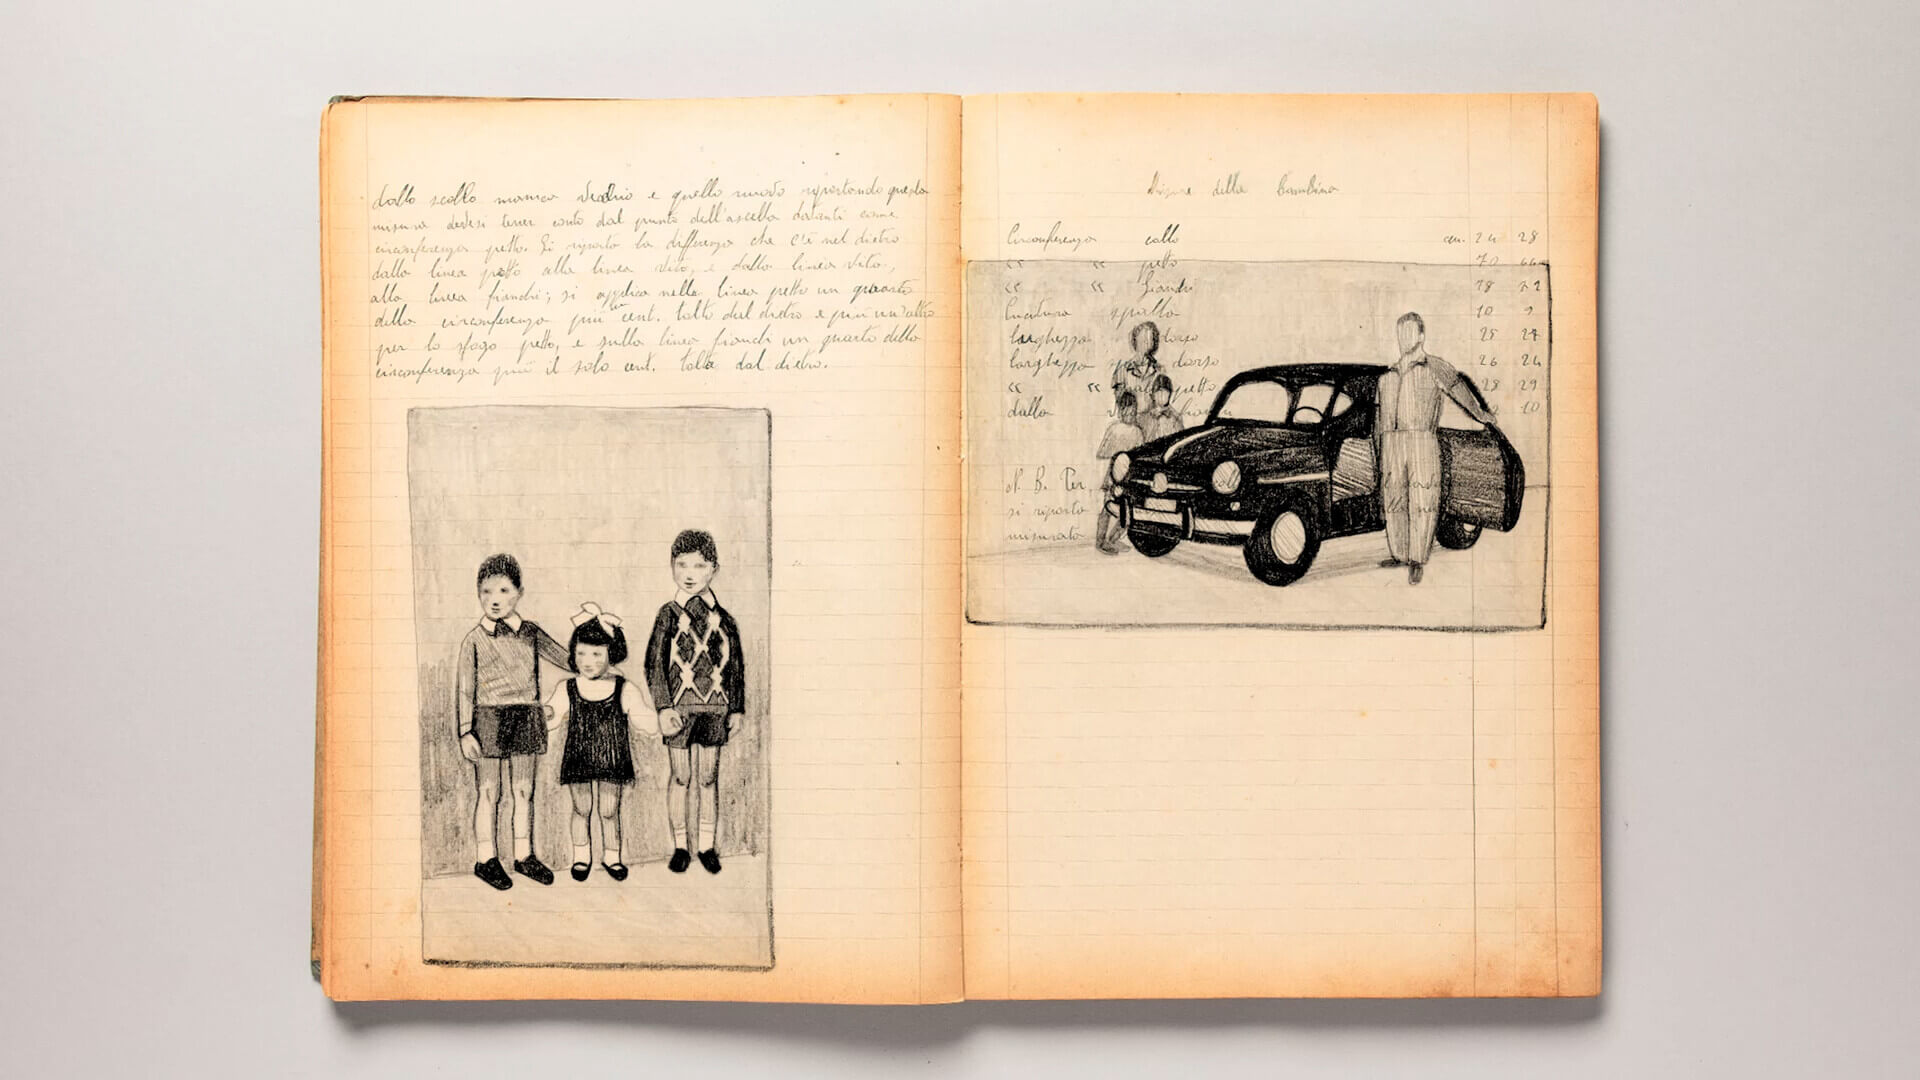 dallo scollo manica dietro e quello nuovo riportando questa
misura devesi tener conto dal punto dell'ascella davanti come
circonferenza petto. Si riporta la differenza che c'è nel dietro
dalla linea petto alla linea vita, e dalla linea vita,
alla linea fianchi; si applica nella linea petto un quarto
della circonferenza più un cent. tolto dal dietro e più un'altro
per lo sfogo petto, e sulla linea fianchi un quarto della
circonferenza più il solo cent. tolto dal dietro.
Misure della bambina
Circonferenza collo cm. 24 28
“ “ petto 70 66
“ “ fianchi 78 72
spalla 10 9
larghezza dorso 25 24
larghezza dorso 26 24
“ “ petto 28 29
dalla 10
N. B. Per
si riporta
misurato